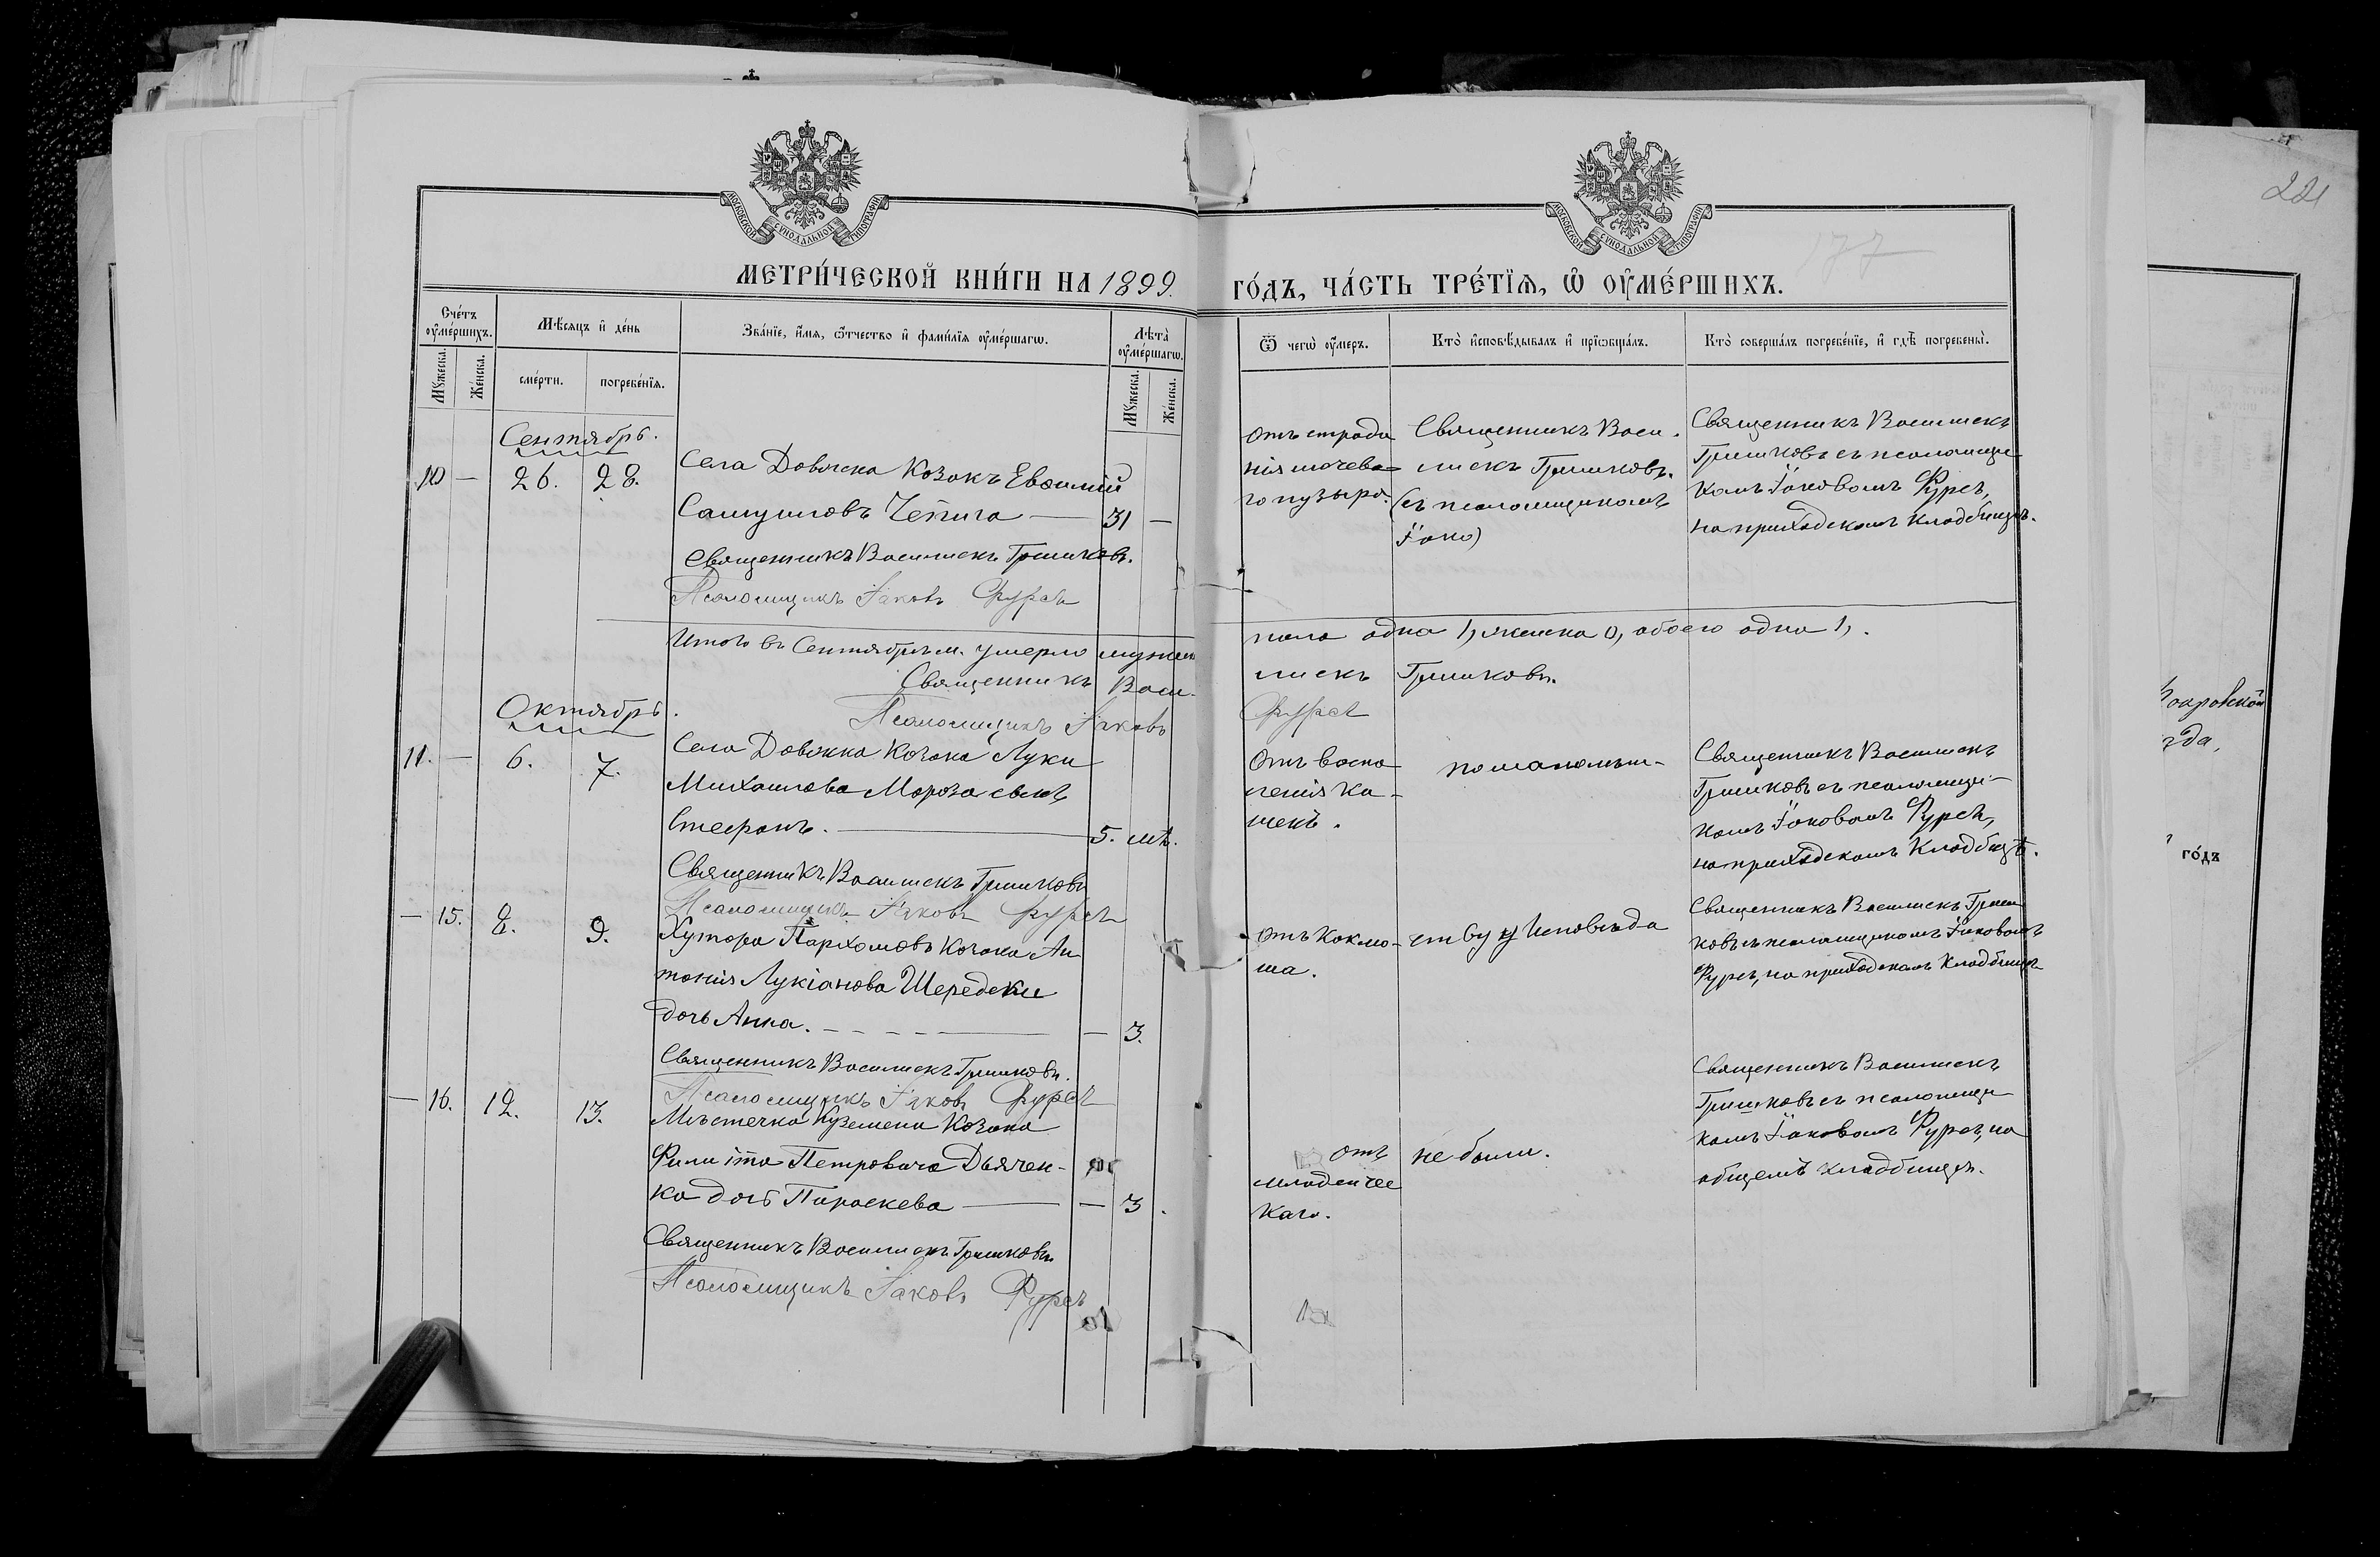 МОСКОВСКОЙ СУНОДАЛЬНОЙ ТИПОГРАФІИ
МОСКОВСКОЙ СУНОДАЛЬНОЙ ТИПОГРАФІИ
221
177
МЕТРИ́ЧЕСКОЙ КНИ́ГИ НА 1899. ГО́ДЪ, ЧА́СТЬ ТРЕ́ТІѦ, Ѡ҆ ОУ҆МЕ́РШИХЪ.
Сче́тъ оу҆ме́ршихъ.
Мѣ́сяцъ и҆ де́нь
Зва́нїе, и҆́мя, ѻ҆́тчество и҆ фами́лїя оу҆ме́ршагѡ.
Лѣ́та оу҆ме́ршагѡ.
Ѿ чегѡ̀ оу҆́меръ.
Кто̀ и҆сповѣ́дывалъ и҆ прїѡбща́лъ.
Кто̀ соверша́лъ погребе́нїе, и҆ гдѣ̀ погребены̀.
Мꙋ́жеска.
Же́нска.
сме́рти.
погребе́нїя.
Мꙋ́жеска.
Же́нска.
Сентябрь.
10 — 26. 28.
Села Довжка Козакъ Евѳимій
Самуиловъ Чепига — 31 —
Священникъ Василискъ Гришковъ.
Псаломщикъ Іаковъ Фурсъ
отъ страда
нія мочева-
го пузыря.
Священникъ Васи-
лискъ Гришковъ.
(съ псаломщикомъ
Іако)
Священникъ Василискъ
Гришковъ съ псаломщи
комъ Іаковомъ Фурсъ,
на приходскомъ кладбищѣ.
Итого въ Сентябрѣ м. умерло мужеск пола одна 1, женска 0, обоего одна 1,.
Священникъ Васи-лискъ Гришковъ.
Псаломщикъ Іаковъ Фурсъ
Октябрь.
11. — 6. 7.
Села Довжка Козака Луки
Михаилова Мороза сынъ
Стефанъ. — 5. мѣ.
Священникъ Василискъ Гришковъ
Псаломщикъ Іаковъ Фурсъ
Отъ воспа
ленія ки-
шекъ.
по малолѣт-
Священникъ Василискъ
Гришковъ съ псаломщи-
комъ Іаковомъ Фурсъ,
на приходскомъ кладбищѣ.
— 15. 8. 9.
Хутора Пархомовъ Козака Ан
тонія Лукіанова Шередеки
дочь Анна. — — 3.
Священникъ Василискъ Гришковъ.
Псаломщикъ Іаковъ Фурсъ
отъ коклю-
ша.
ству у исповѣда
Священникъ Василискъ Гриш
ковъ съ псаломщикомъ Іаковомъ
Фурсъ, на приходскомъ кладбищѣ
— 16. 12. 13.
Мѣстечка Куземена Козака
Филиппа Петровича Дьячен-
ка дочь Параскева — — 3.
Священникъ Василискъ Гришковъ
Псаломщикъ Іаковъ Фурсъ
отъ
младенчес
каго.
не были.
Священникъ Василискъ
Гришковъ съ псаломщи
комъ Іаковомъ Фурсъ, на
общемъ кладбищѣ.
года,
го́дъ